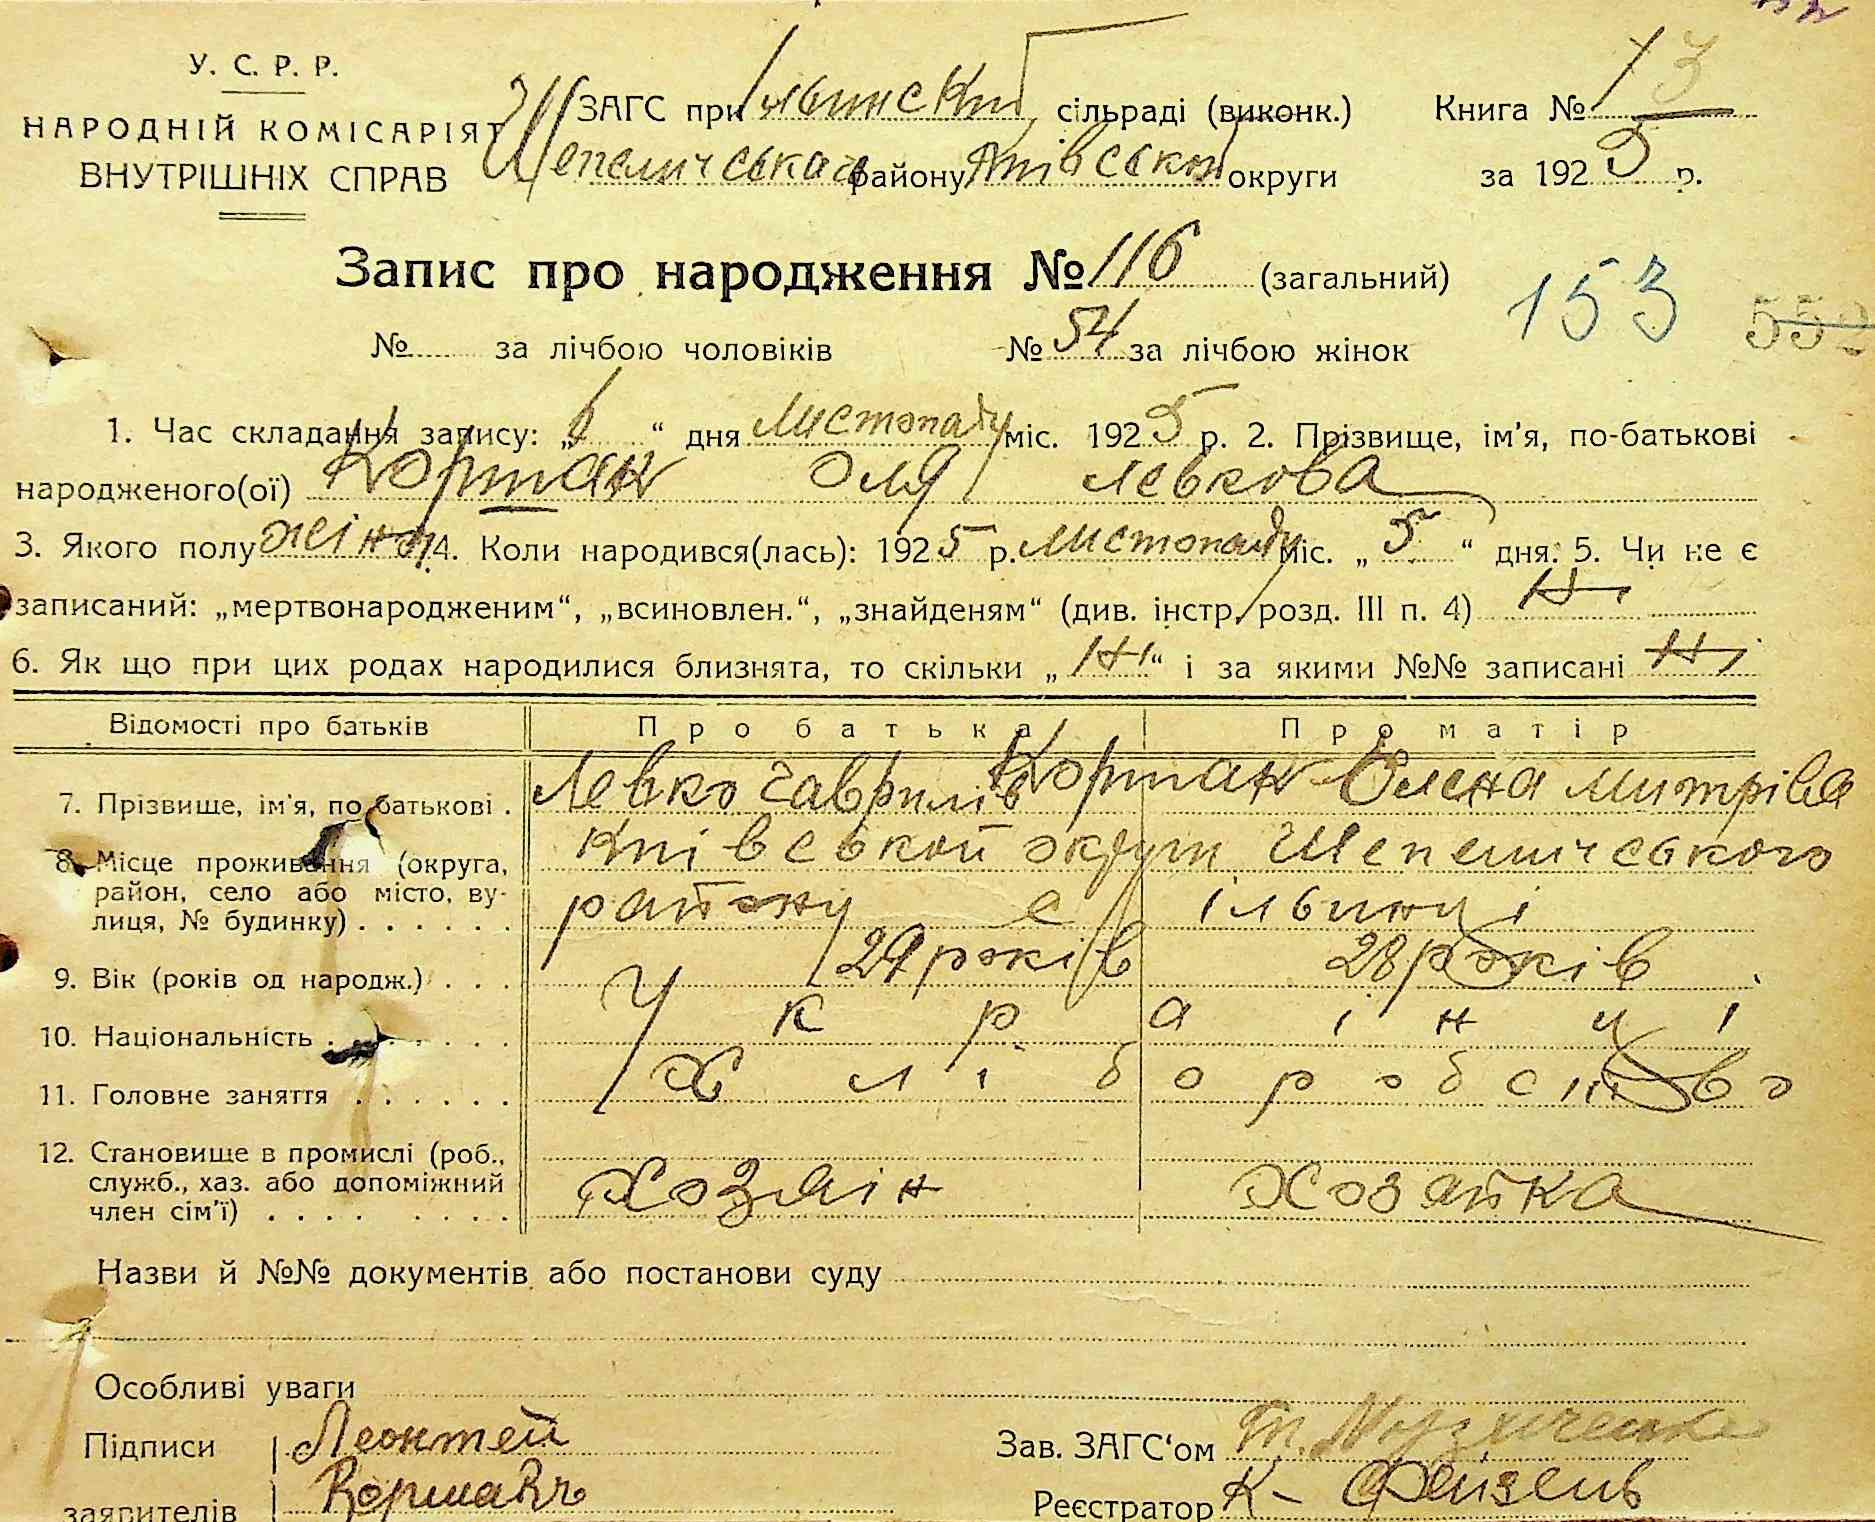 У. С. Р. Р.
НАРОДНІЙ КОМІСАРІЯТ
ВНУТРІШНІХ СПРАВ
ЗАГС при Ільинскій сільраді (виконк.)
Шепеличського району Київської округи
Книга № 13
за 1925 р.
Запис про народження № 116 (загальний)
153
552
№ за лічбою чоловіків № 54 за лічбою жінок
1. Час складання запису: „6“ дня Листопаду міс. 1925 р. 2. Прізвище, ім'я, по-батькові
народженого(ої) Коршак Оля Левкова
3. Якого полу жіно 4. Коли народився(лась): 1925 р. листопаду міс. „5“ дня. 5. Чи не є
записаний: „мертвонародженим“, „всиновлен.“, „знайденям“ (див. інстр. розд. III п. 4) Ні
6. Як що при цих родах народилися близнята, то скільки „Ні“ і за якими №№ записані Ні
Відомості про батьків Про батька Про матір
7. Прізвище, ім'я, по батькові . Левко Гаврилів Коршак Олена Митрівва
8. Місце проживання (округа, район, село або місто, вулиця, № будинку) . . . . . . Київської округи Шепеличського
району с Ільинці
9. Вік (років од народж.) . . . 29 років 28 років
10. Національність . . . . . . Українці
11. Головне заняття . . . . . . Хліборобство
12. Становище в промислі (роб., служб., хаз. або допоміжний член сім'ї) . . . . . . . . Хозяін Хозяйка
Назви й №№ документів або постанови суду
Особливі уваги
Підписи Леонтей
заявителів Коршакъ
Зав. ЗАГС'ом
Реєстратор К-